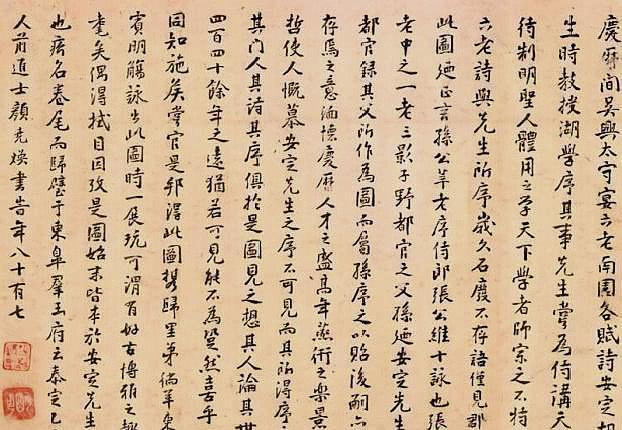 慶曆間吳興太守宴六老南園各賦詩安定胡
生時教授湖學序其事先生嘗為侍講天
待制明聖人體用之学天下學者師宗之不特
六老詩與先生所序歲久石廢不存語僅見郡
此圖迺正言孫公莘老序侍郎張公維十詠也張
老中之一老三影子野都官之父孫迺安定先生
都官録其父所作為圖而屬孫序之以貽後嗣六
存焉之意緬懷慶曆人才之盛髙年燕衎之樂景
哲使人慨慕安定先生之序不可見而其所得序
其門人其詩其序俱於是圖見之想其人論其世
四百四十餘年之遠猶若可見能不為跫然喜乎
同知施矦掌官是邦得此圖携歸里弟徜羊東
賓明觴詠出此圖時一展玩可謂有好古博雅之趣
耄矣偶得拭目因攷是圖始末皆本於安定先生
也疥名卷尾而歸璧于東皐羣玉府云泰定乙
人前進士顔堯煥書旹年八十有七